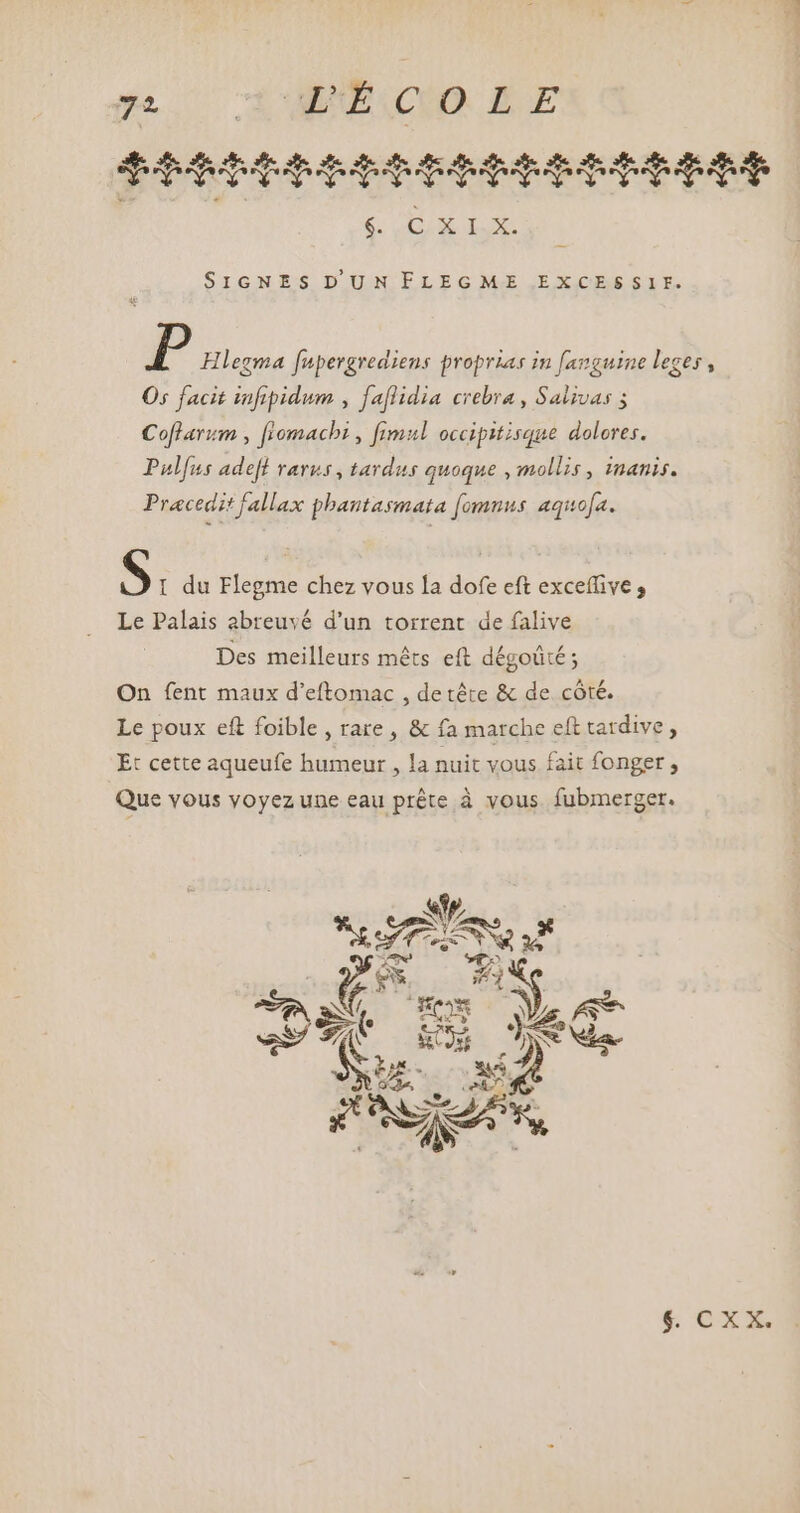 72 L'ÉCOLE
§. CXIX.
SIGNES D'UN FLEGME EXCESSIF.
PHlegma ſupergrediens proprias in ſanguine leges,
Os facit inſipidum, faſtidia crebra, Salivas;
Coſtarum, ſtomachi, ſimul occipitisque dolores.
Pulſus adeſt rarus, tardus quoque, mollis, inanis.
Præcedit fallax phantasmata ſomnus aquoſa.
SI du Flegme chez vous la doſe eſt exceſſive,
Le Palais abreuvé d'un torrent de ſalive
Des meilleurs mêts eſt dégoûté;
On ſent maux d'eſtomac, de tête & de côté.
Le poux eſt foible, rare, & ſa marche eſt tardive,
Et cette aqueuſe humeur, la nuit vous fait ſonger,
Que vous voyez une eau prête à vous ſubmerger.
§. CXX.